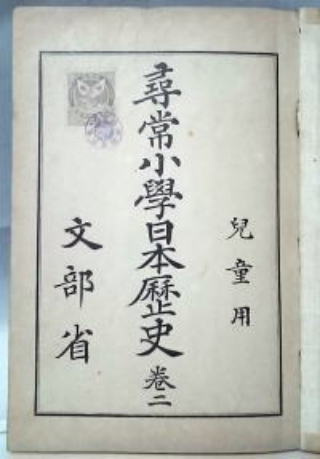 兒童用
尋常小學日本歷史 卷二
文部省